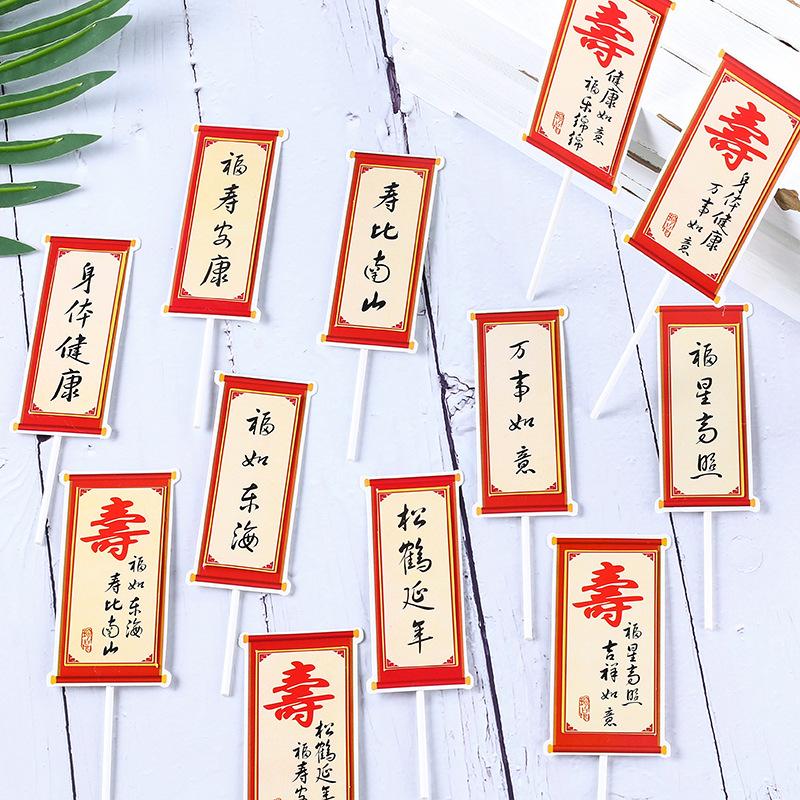 壽
健康如意
福乐绵绵
壽
身体健康
万事如意
福寿安康
寿比南山
身体健康
万事如意
福星高照
福如东海
松鹤延年
壽
福如东海
寿比南山
壽
福星高照
吉祥如意
壽
松鹤延年
福寿安